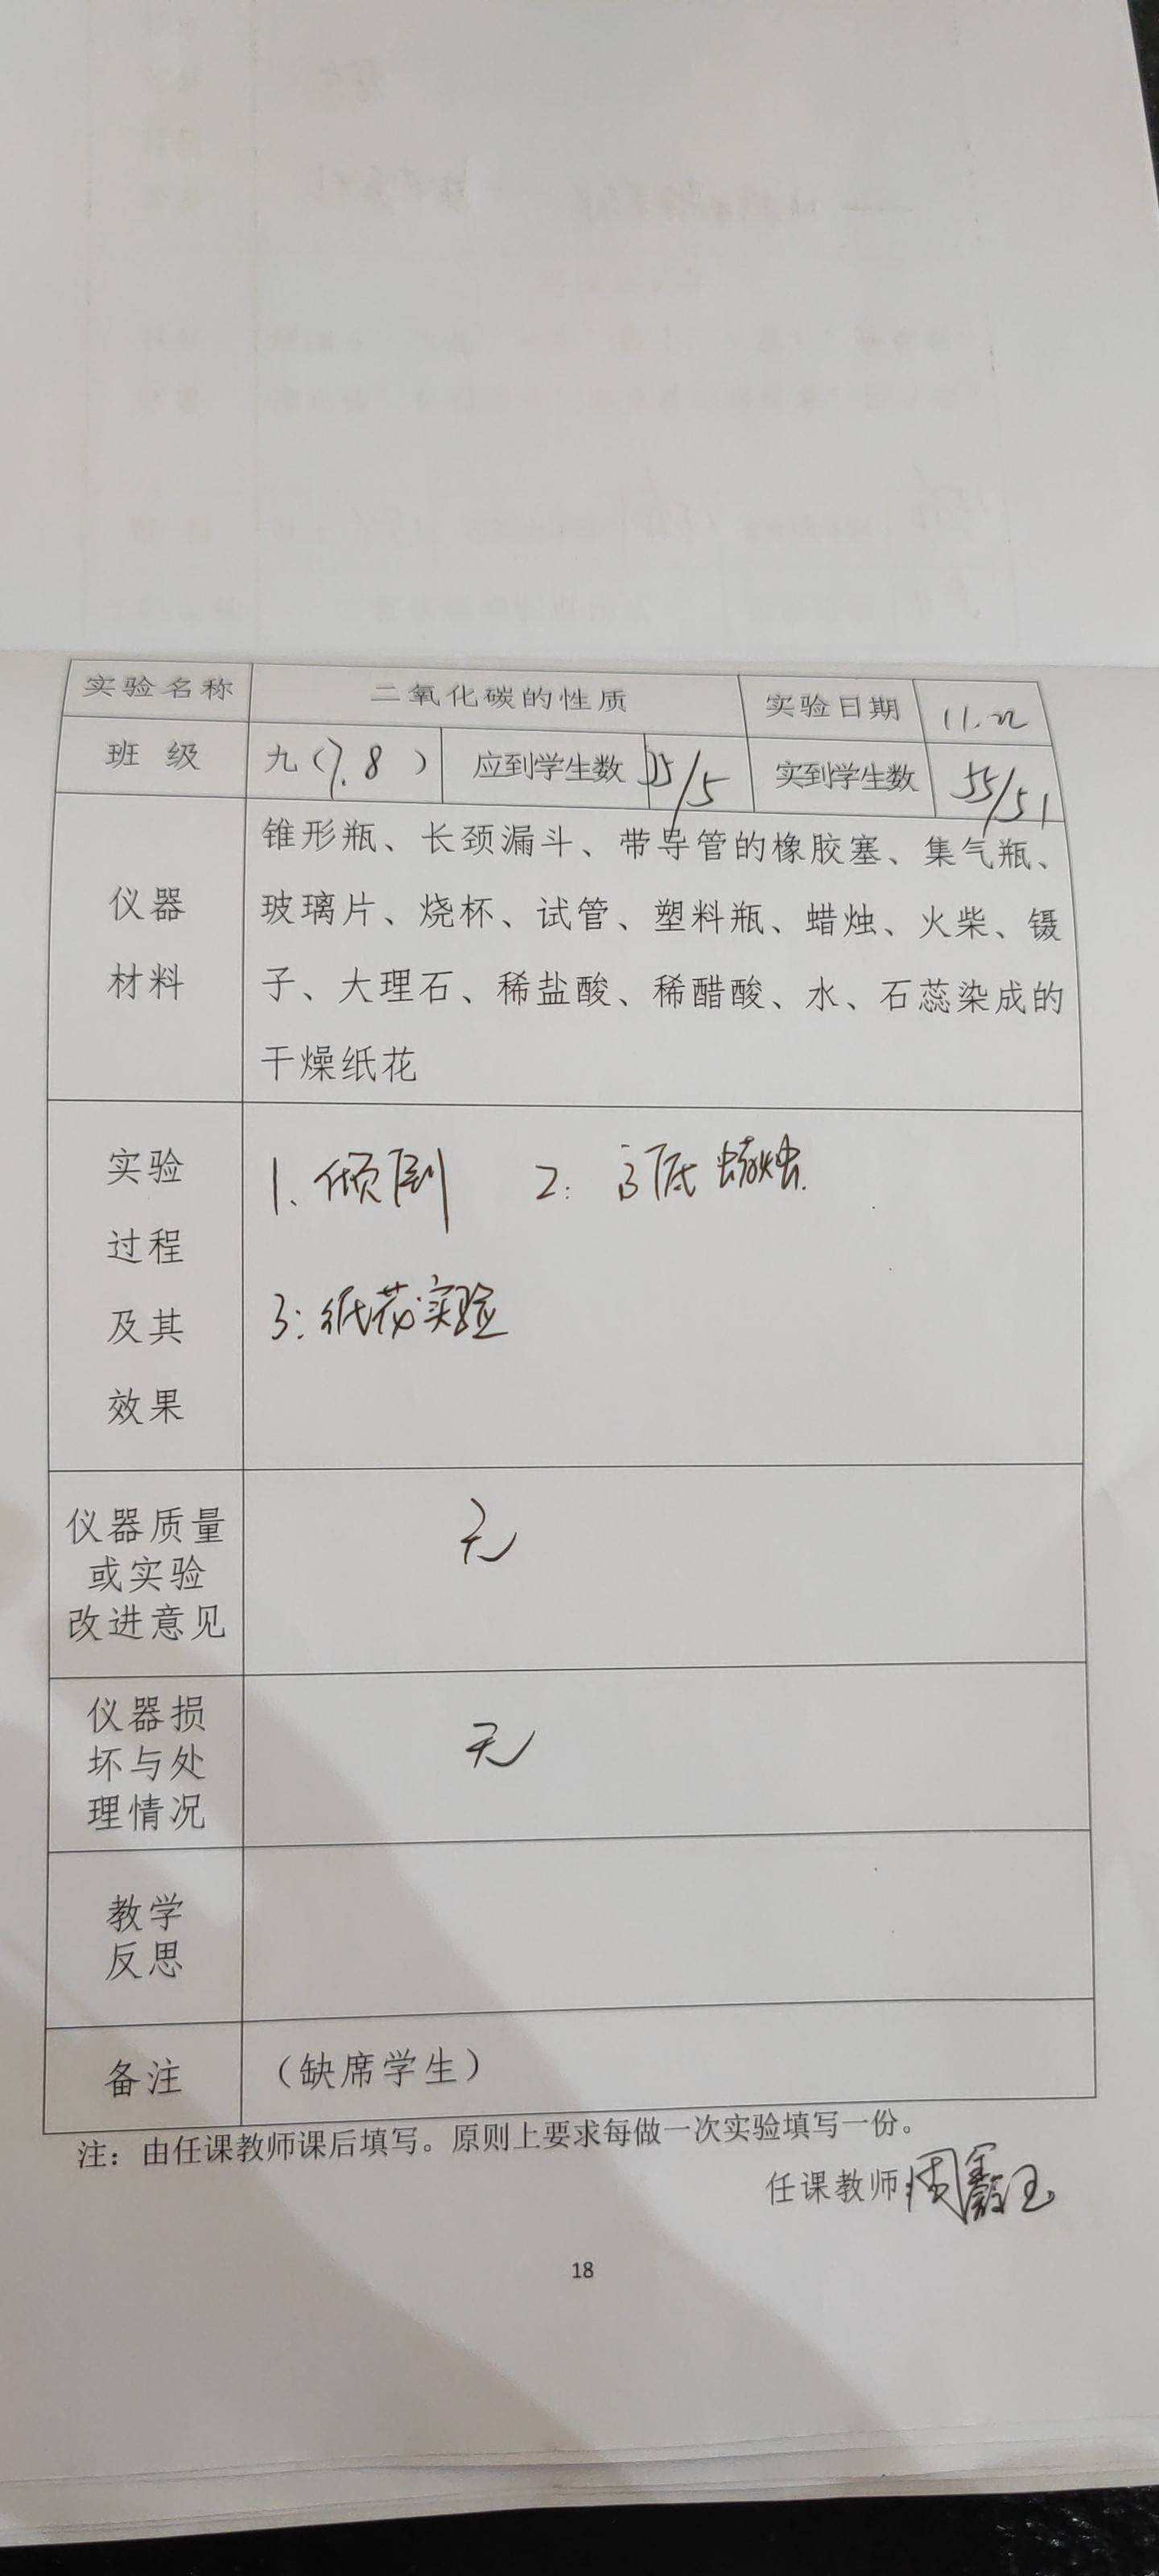 实验名称 二氧化碳的性质 实验日期 11.22
班 级 九（7.8 ） 应到学生数 55/5 实到学生数 55/51
仪器
材料
锥形瓶、长颈漏斗、带导管的橡胶塞、集气瓶、
玻璃片、烧杯、试管、塑料瓶、蜡烛、火柴、镊
子、大理石、稀盐酸、稀醋酸、水、石蕊染成的
干燥纸花
实验
过程
及其
效果
1、倾倒 2：高低蜡烛.
3：纸花实验
仪器质量
或实验
改进意见
无
仪器损
坏与处
理情况
无
教学
反思
备注 （缺席学生）
注：由任课教师课后填写。原则上要求每做一次实验填写一份。
任课教师：周
18